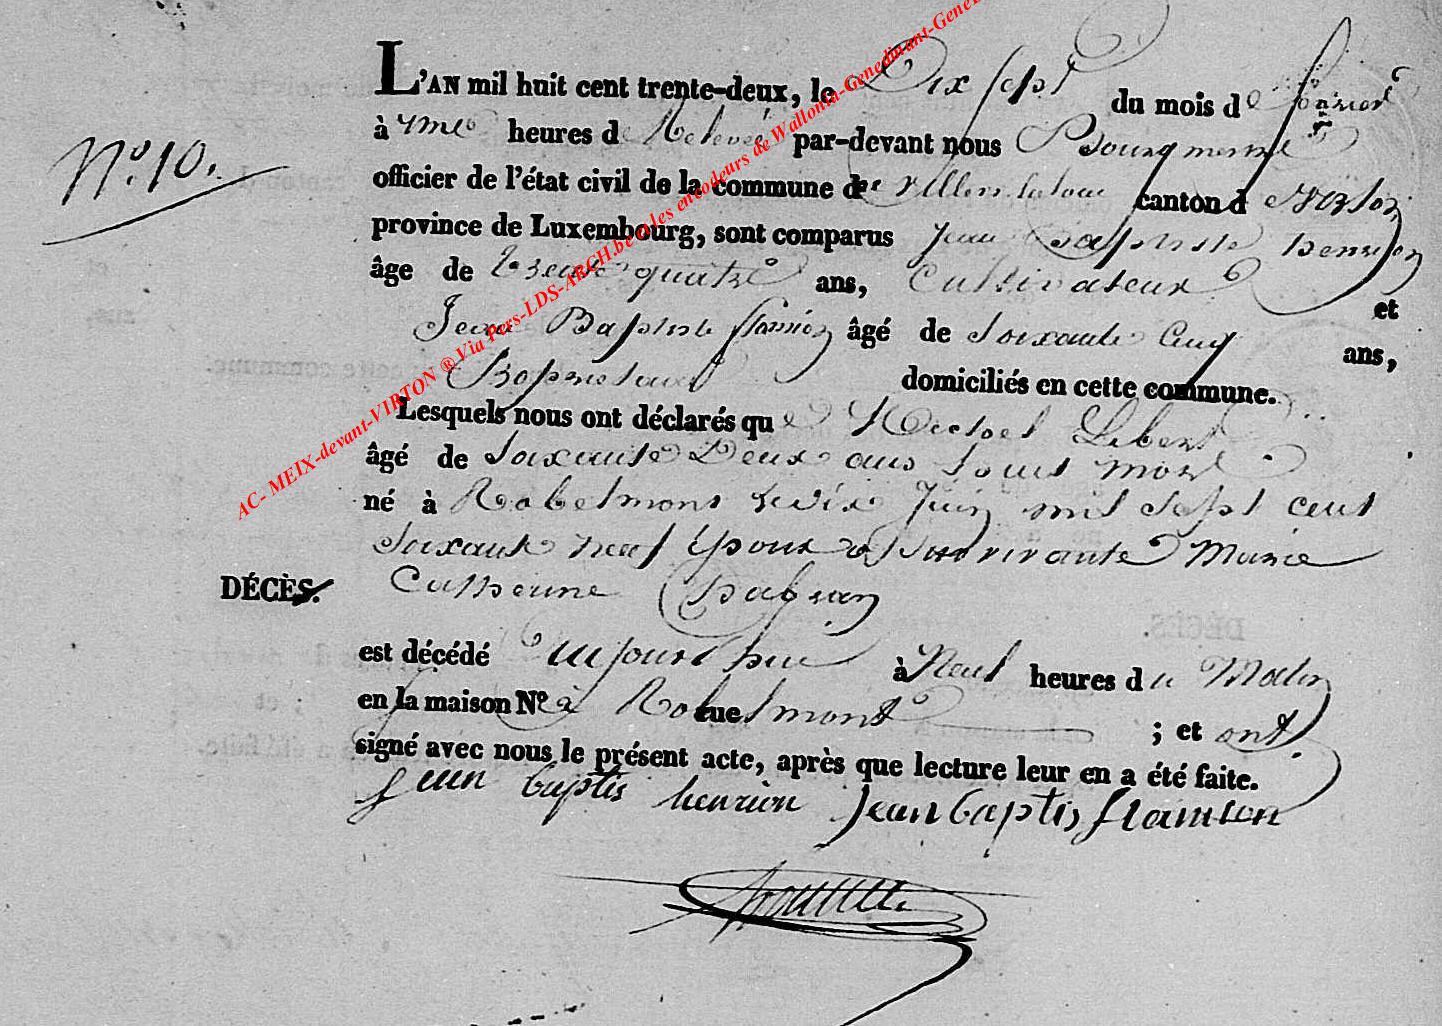 L'AN mil huit cent trente-deux, le Dix sept du mois de
N.° 10.
à une heures de Relevé par-devant nous Bourgmestre
officier de l'état civil de la commune de Villers la loue canton d Virton
province de Luxembourg, sont comparus Jean Baptiste henrion
âge de trente quatre ans, Cultivateur et
Jean Baptiste flamion âgé de Soixante Cinq ans,
domiciliés en cette commune.
Lesquels nous ont déclarés que Michel Libert
âgé de Soixante Deux ans mort
né à Robelmont le dix Juin mil Sept cent
Soixante neuf Epoux a Survivante Marie
DÉCÈS. Catherine
est décédé aujourd'hui à Neuf heures du Matin
en la maison N.° à rue Robelmont ; et ont
signé avec nous le présent acte, après que lecture leur en a été faite.
Jean baptis henrion Jean baptis flamion
AC- MEIX-devant-VIRTON ® Via Pers-LDS-ARCH.be et les encodeurs de Wallonia-Genedinant-Gene